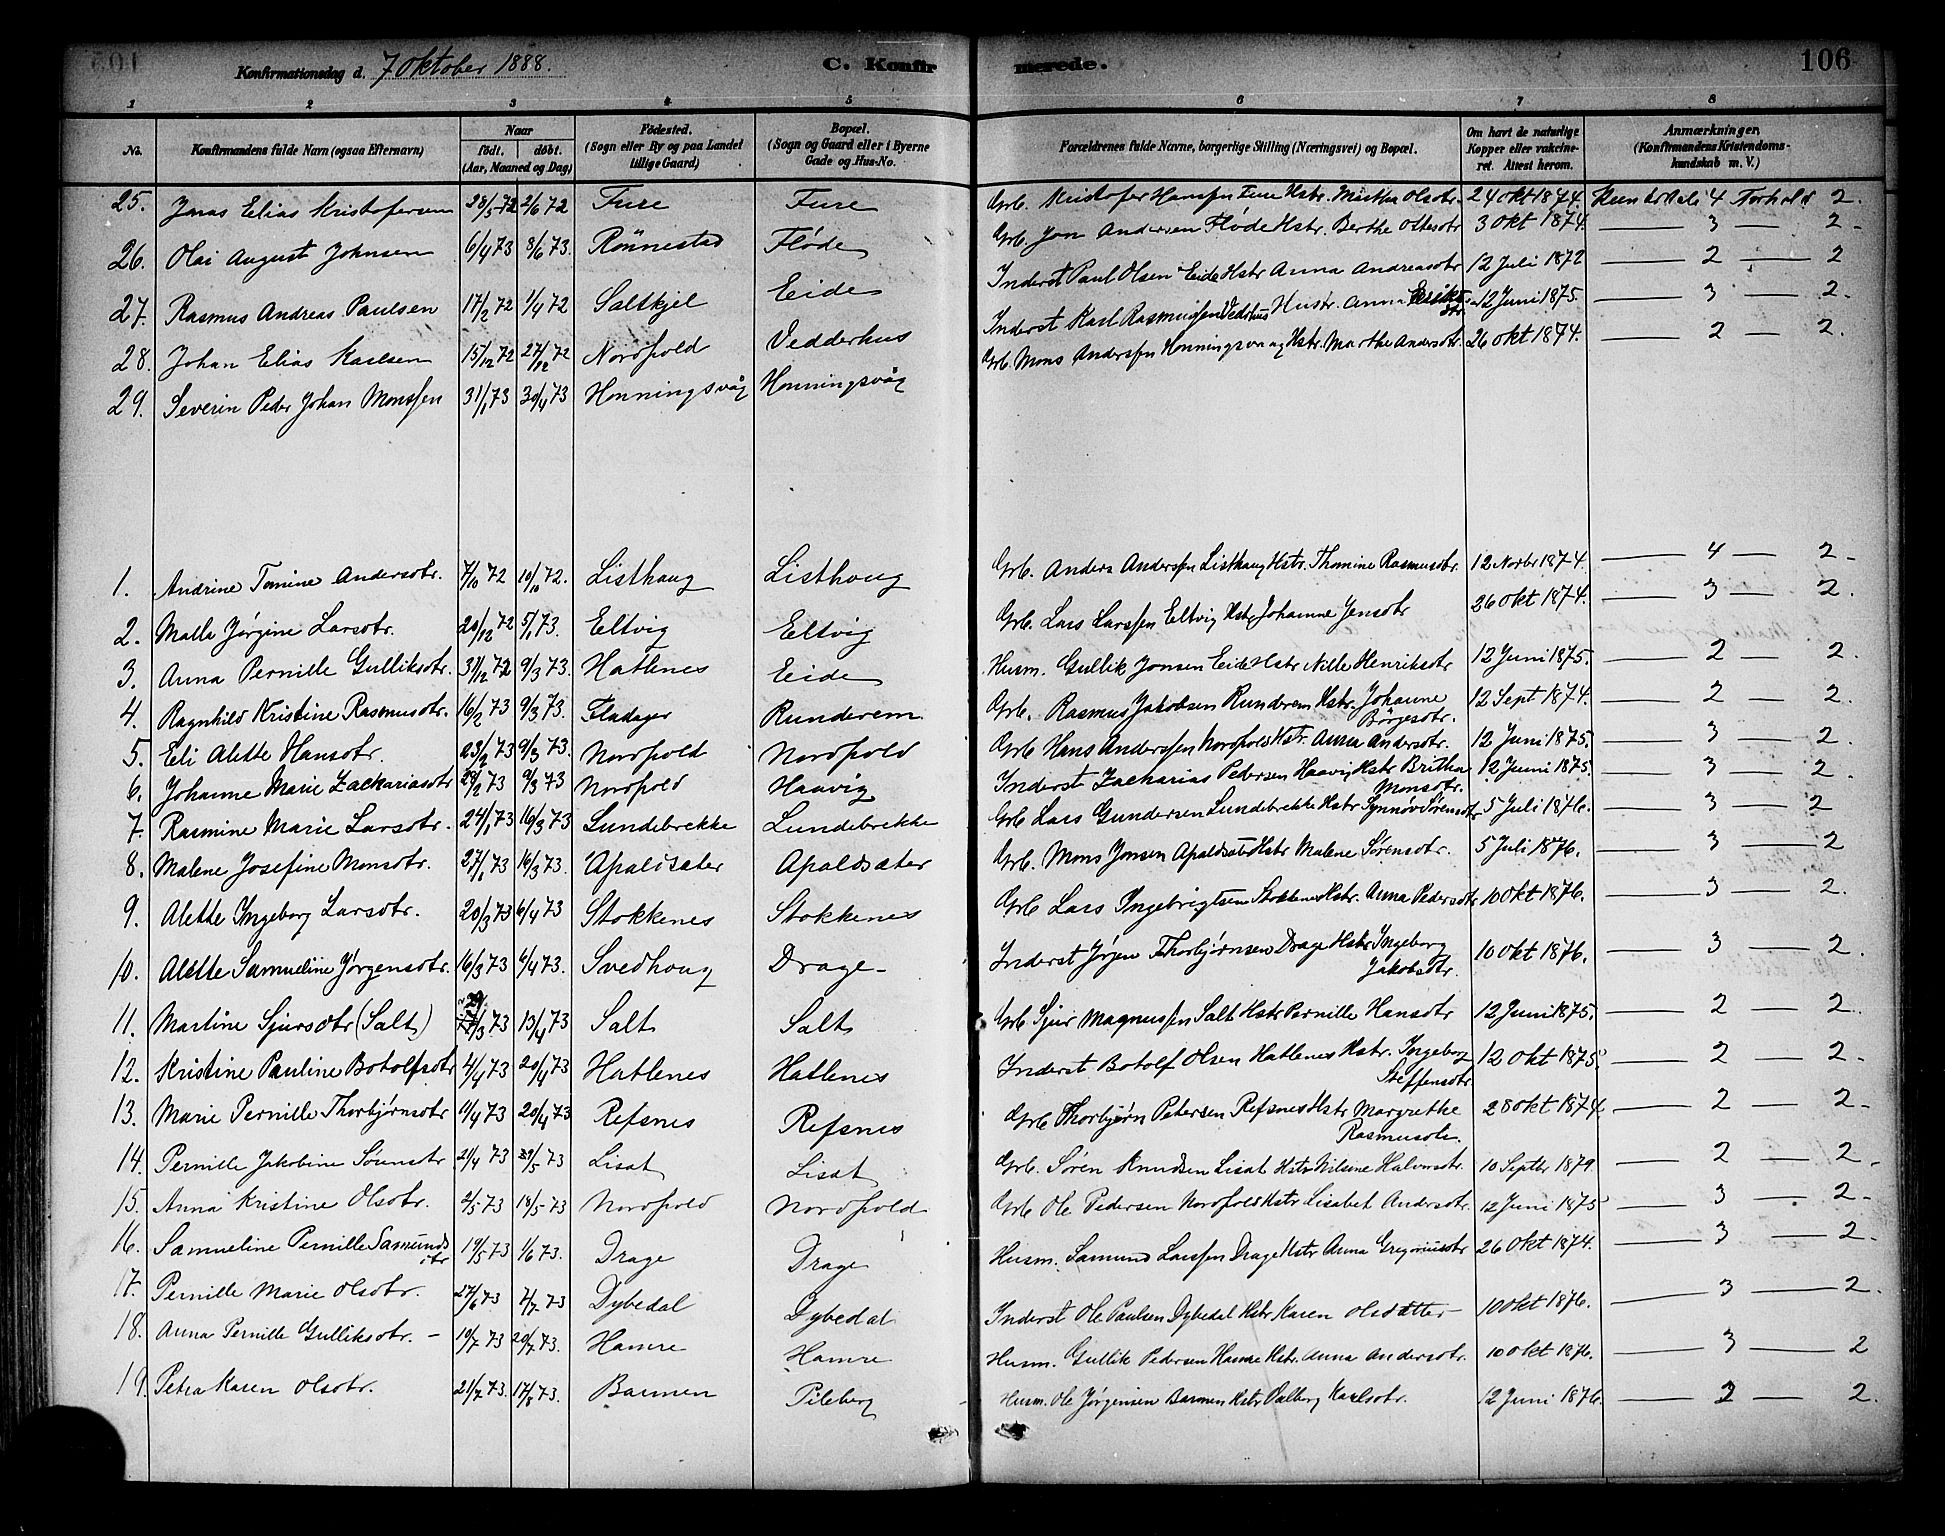 Konfirmationsdag d. 7 Oktober 1888. C. Konfirmerede. 106
1 2 3 4 5 6 7 8
No. Konfirmandens fulde Navn (ogsaa Efternavn) Naar født. døbt. (Aar, Maaned og Dag) Fødested. (Sogn eller By og paa Landet tillige Gaard) Bopæl. (Sogn og Gaard eller i Byerne Gade og Hus-No. Forældrenes fulde Navne, borgerlige Stilling (Næringsvei) og Bopæl. Om havt de naturlige Kopper eller vakcineret. Attest herom. Anmærkninger. (Konfirmandens Kristendomskundskab m. V.)
25. Jonas Elias Kristofersen 28/5 72 2/6 72 Fure Fure Grb. Kristofer Hanssen Fure Hstr. Olsdtr. 24 Okt 1874. Kundskab 4 Forhold 2.
26. Olai August Johnsen 6/4 73 8/6 73. Rönnestad Flöde Grb. Jon Andersen Flöde Hstr. Berthe Ottesdtr 3 Okt 1874. — 3 — 2.
27. Rasmus Andreas Paulsen 17/2 72 1/4 72 Saltkjel Eide Inderst Paul Olsen Eide Hstr Anna Andreasdtr 12 Juli 1872 — 2 — 2
28. Johan Elias Karlsen 15/12 72 27/12 72 Nordpold Vedderhus Inderst Karl Rasmussen Vedrhus Hustr. Anna Eriksdtr. 12 Juni 1875. — 3 — 2.
29. Severin Peder Johan Monssen 31/1 73 30/4 73 Honningsvåg Honningsvåg Grb. Mons Anderssen Honningsvaag Hstr. Marthe Andersdtr. 26 Okt 1874. — 2 — 2.
1. Andrine Tomine Andersdtr. 7/10 72 10/10 72. Listhaug Listhoug Grb. Anders Anderssen Listhaug Hstr. Thomine Rasmusdtr. 12 Novbr 1874. — 4 — 2.
2. Malla Jørgine Larsdtr. 20/12 72 5/1 73. Eltvig Eltvig Grb. Lars Larssen Eltvig Hstr Johanne Jensdtr 26 Okt 1874. — 3 — 2.
3. Anna Pernille Gulliksdtr. 31/12 72 9/3 73. Hatlenes Eide Husm. Gullik Jonsen Eide Hstr Nille Henriksdtr 12 Juni 1875. — 2 — 2.
4. Ragnhild Kristine Rasmusdtr. 16/2 73 9/3 73. Fladager Runderem Grb. Rasmus Jakobsen Runderem Hstr. Johanne Börgesdtr. 12 Sept 1874. — 2 — 2.
5. Eli Alette Hansdtr. 23/2 73 9/3 73. Nordpold Nordpold Grb Hans Anderssen Nordpold Hstr. Anna Andersdtr. 12 Juni 1875. — 3 — 2.
6. Johanne Marie Zachariasdtr 28/2 73 9/3 73 Nordpold Haavig Inderst Zacharias Pedersen Haavig Hstr Britha Monsdtr. 12 Juni 1875. — 3 — 2.
7. Rasmine Marie Larsdtr. 24/1 73 16/3 73 Lundebrekke Lundebrekke Grb Lars Gundersen Lundebrekke Hstr Synnøv Sørensdtr 5 Juli 1876. — 3 — 2
8. Malene Josefine Monsdtr. 27/1 73 16/3 73 Apaldsæter Apaldsæter Grb. Mons Jonsen Apaldsæt Hstr Malene Sørensdtr. 5 Juli 1876. — 3 — 2
9. Alette Ingeborg Larsdtr. 20/3 73 6/4 73 Stokkenes Stokkenes Grb Lars Ingebrigtsen Stokkenes Hstr. Anna Pedersdtr 10 Okt 1876. — 3 — 2.
10. Alette Samueline Jørgensdtr. 16/3 73 6/4 73. Svedhoug Drage Inderst Jørgen Thorbjørnsen Drage Hstr Ingeborg Jakobsdtr. 10 Okt 1876. — 3 — 2.
11. Martine Sjursdtr (Salt) 73 13/4 73 Salt Salt Grb Sjur Magnussen Salt Hstr Pernille Hansdtr 12 Juni 1875. — 2 — 2.
12. Kristine Pauline Botolfsdtr 4/4 73 20/4 73 Hatlenes Hatlenes Inderst. Botolf Olsen Hatlenes Hstr. Ingeborg Steffensdtr 12 Okt 1875. — 2 — 2.
13. Marie Pernille Thorbjørnsdtr 11/4 73 20/4 73 Refsnes Refsnes Grb Thorbjørn Petersen Refsnes Hstr Margrethe Rasmusdtr. 28 Okt 1874. — 2 — 2.
14. Pernille Jakobine Sørensdtr 21/4 73 29/5 73 Lisæt Lisæt Grb. Søren Knudsen Lisæt Hstr Nilsine Halvorsdtr. 10 Septbr 1879. — 2 — 2.
15. Anna Kristine Olsdtr. 2/5 73 18/5 73 Nordpold Nordpold Grb Ole Pedersen Nordpold Hstr Lisabet Andersdtr. 12 Juni 1875 — 3 — 2.
16. Samueline Pernille Samundsdtr 19/5 73 1/6 73. Drage Drage Husm. Samund Larssen Drage Hstr Anna Gregoriusdtr 26 Okt 1874. — 3 — 2.
17. Pernille Marie Olsdtr. 27/6 73 2/7 73 Dybedal Dybedal Inderst Ole Paulsen Dybedal Hstr Karen Olsdatter 10 Okt 1876. — 3 — 2.
18. Anna Pernille Gulliksdtr. 19/7 73 20/7 73. Hamre Hamre Husm. Gullik Pedersen Hamre Hstr. Anna Andersdtr. 10 Okt 1876. — 3 — 2
19. Petra Karen Olsdtr. 21/7 73. 17/8 73. Barmen Pileberg Husm. Ole Jørgensen Barmen Hstr Valborg Karlsdtr. 12 Juni 1876. — 2 — 2.